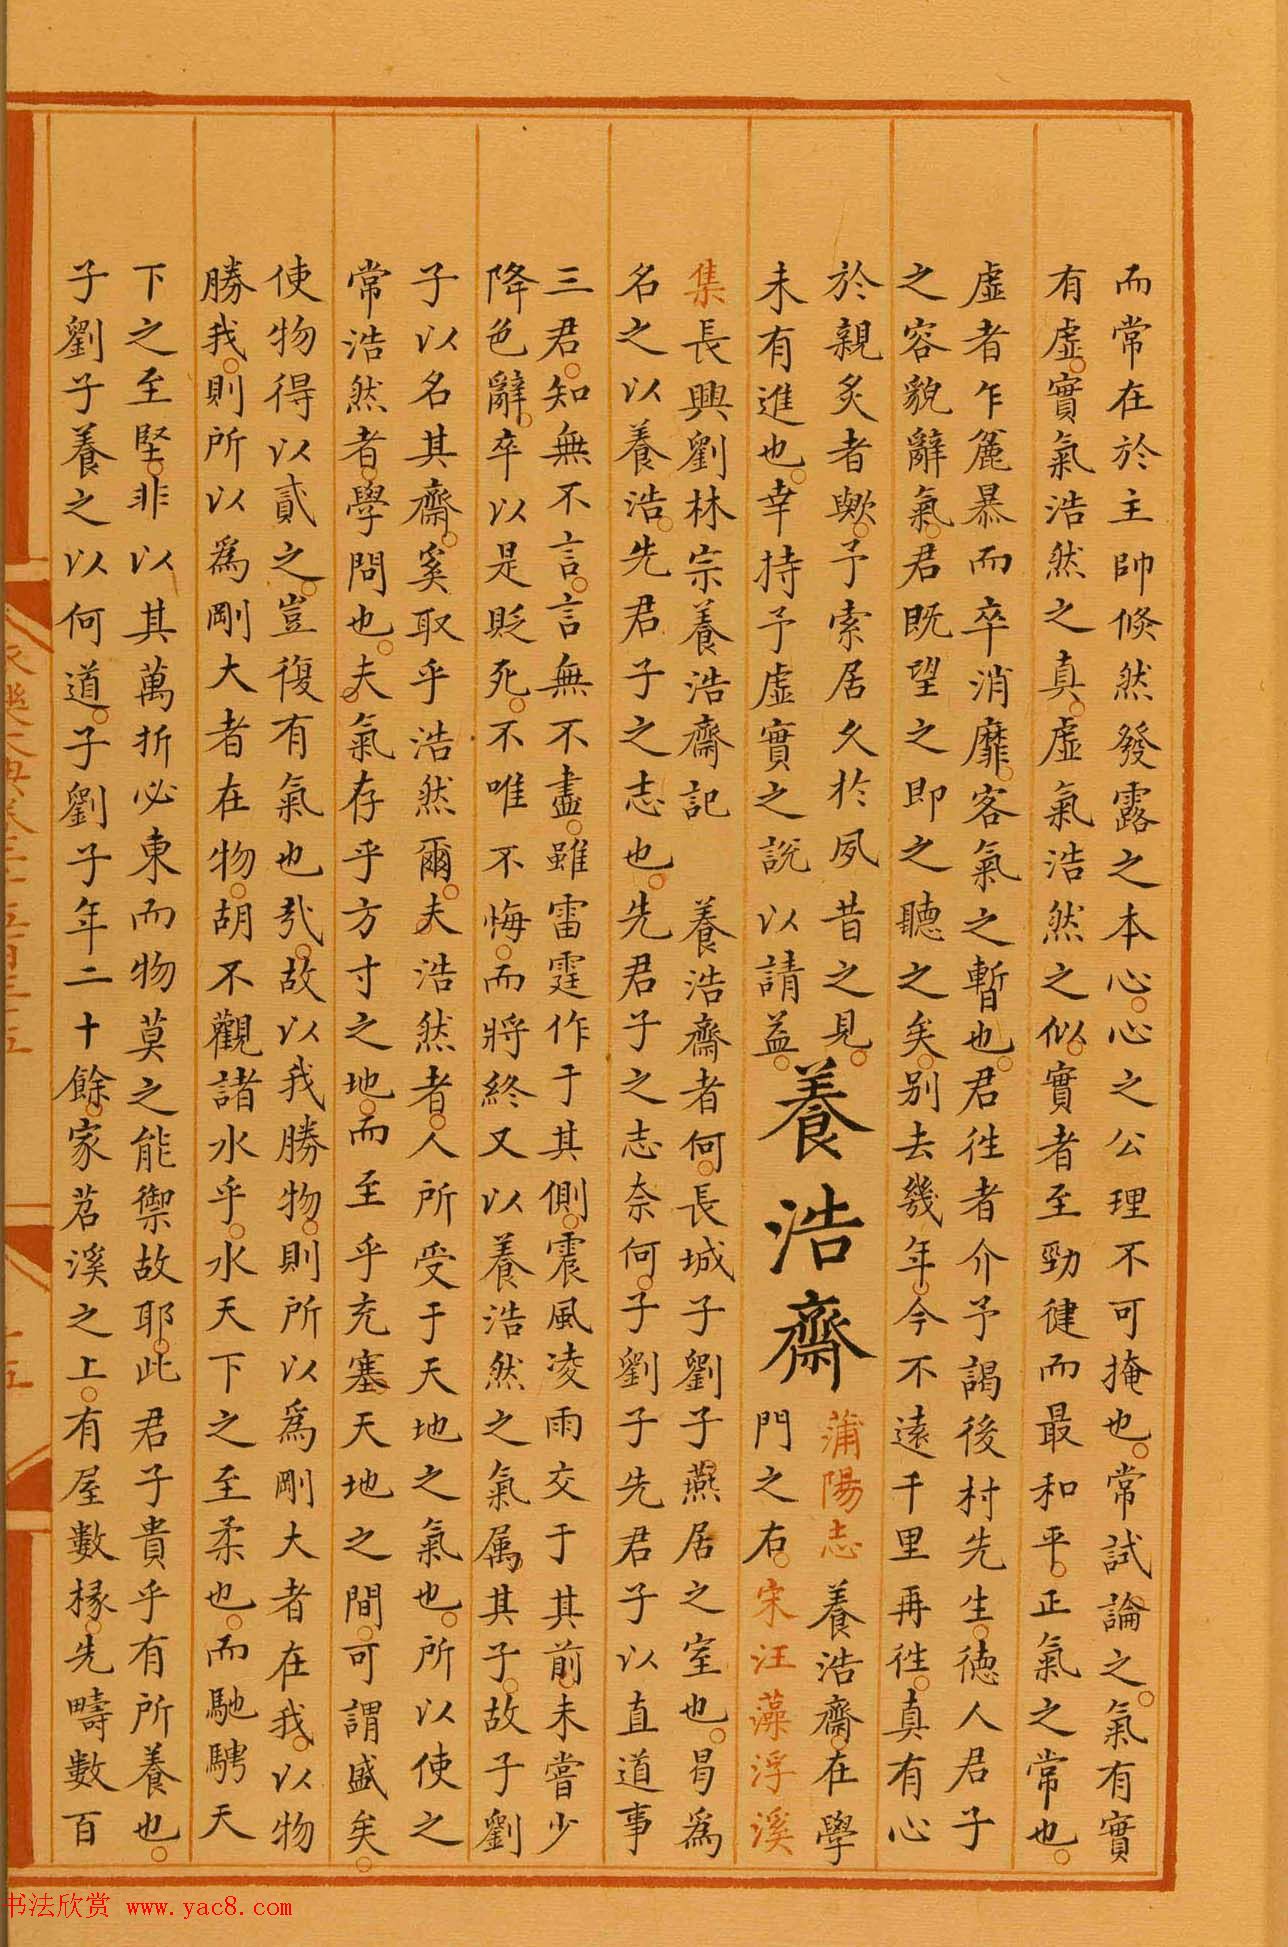 而常在於主帥倐然發露之本心。心之公理不可掩也。常試論之。氣有實
有虛。實氣浩然之真。虛氣浩然之似。實者至勁健而最和平。正氣之常也。
虛者乍麄暴而卒消靡。客氣之暫也。君徃者介予謁後村先生。德人君子
之容貌辭氣。君既望之即之聽之矣。别去幾年。今不遠千里再徃。真有心
於親炙者歟。予索居久於夙昔之見。
未有進也。幸持予虛實之說以請益。
養浩齋
蒲陽志 養浩齋。在學
門之右。宋汪藻浮溪
集長興劉林宗養浩齋記 養浩齋者何。長城子劉子燕居之室也。曷爲
名之以養浩。先君子之志也。先君子之志奈何。子劉子先君子以直道事
三君。知無不言。言無不盡。雖雷霆作于其側。震風凌雨交于其前。未嘗少
降色辭。卒以是貶死。不唯不悔。而將終又以養浩然之氣属其子。故子劉
子以名其齋。奚取乎浩然爾。夫浩然者。人所受于天地之氣也。所以使之
常浩然者。學問也。夫氣存乎方寸之地。而至乎充塞天地之間。可謂盛矣。
使物得以貳之。豈復有氣也㢤。故以我勝物。則所以爲剛大者在我。以物
勝我。則所以爲剛大者在物。胡不觀諸水乎。水天下之至柔也。而馳騁天
下之至堅。非以其萬折必東而物莫之能禦故耶。此君子貴乎有所養也。
子劉子養之以何道。子劉子年二十餘。家苕溪之上。有屋數椽。先疇數百
书法欣赏 www.yac8.com